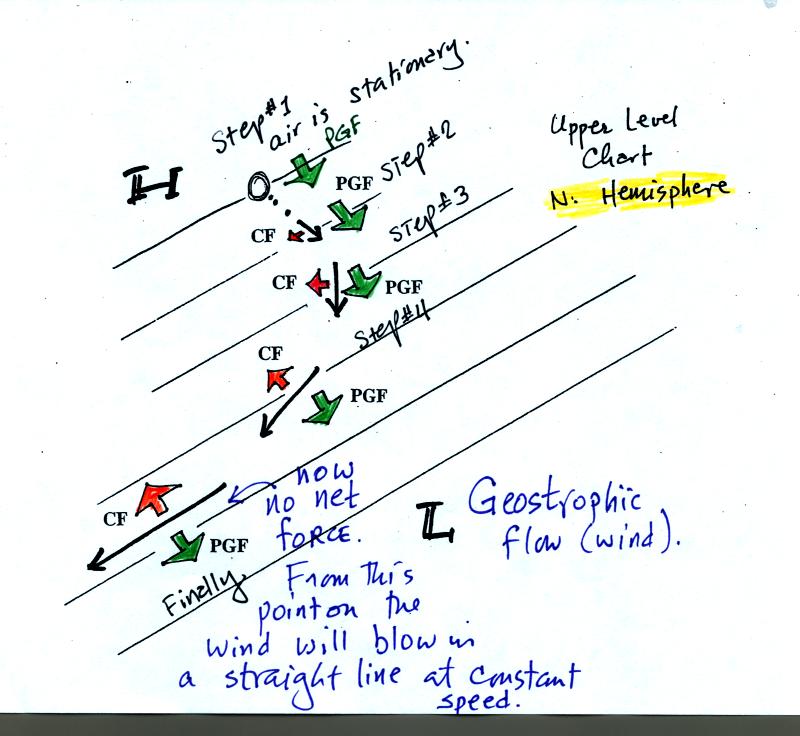 Step #1
air is stationary.
PGF
H
PGF
Step #2
CF
Step #3
CF
PGF
Step #4
CF
PGF
Upper Level
Chart
N. Hemisphere
now
no net
FORCE.
CF
PGF
L
Geostrophic
flow (wind).
Finally,
From this
point on the
wind will blow in
a straight line at constant
speed.